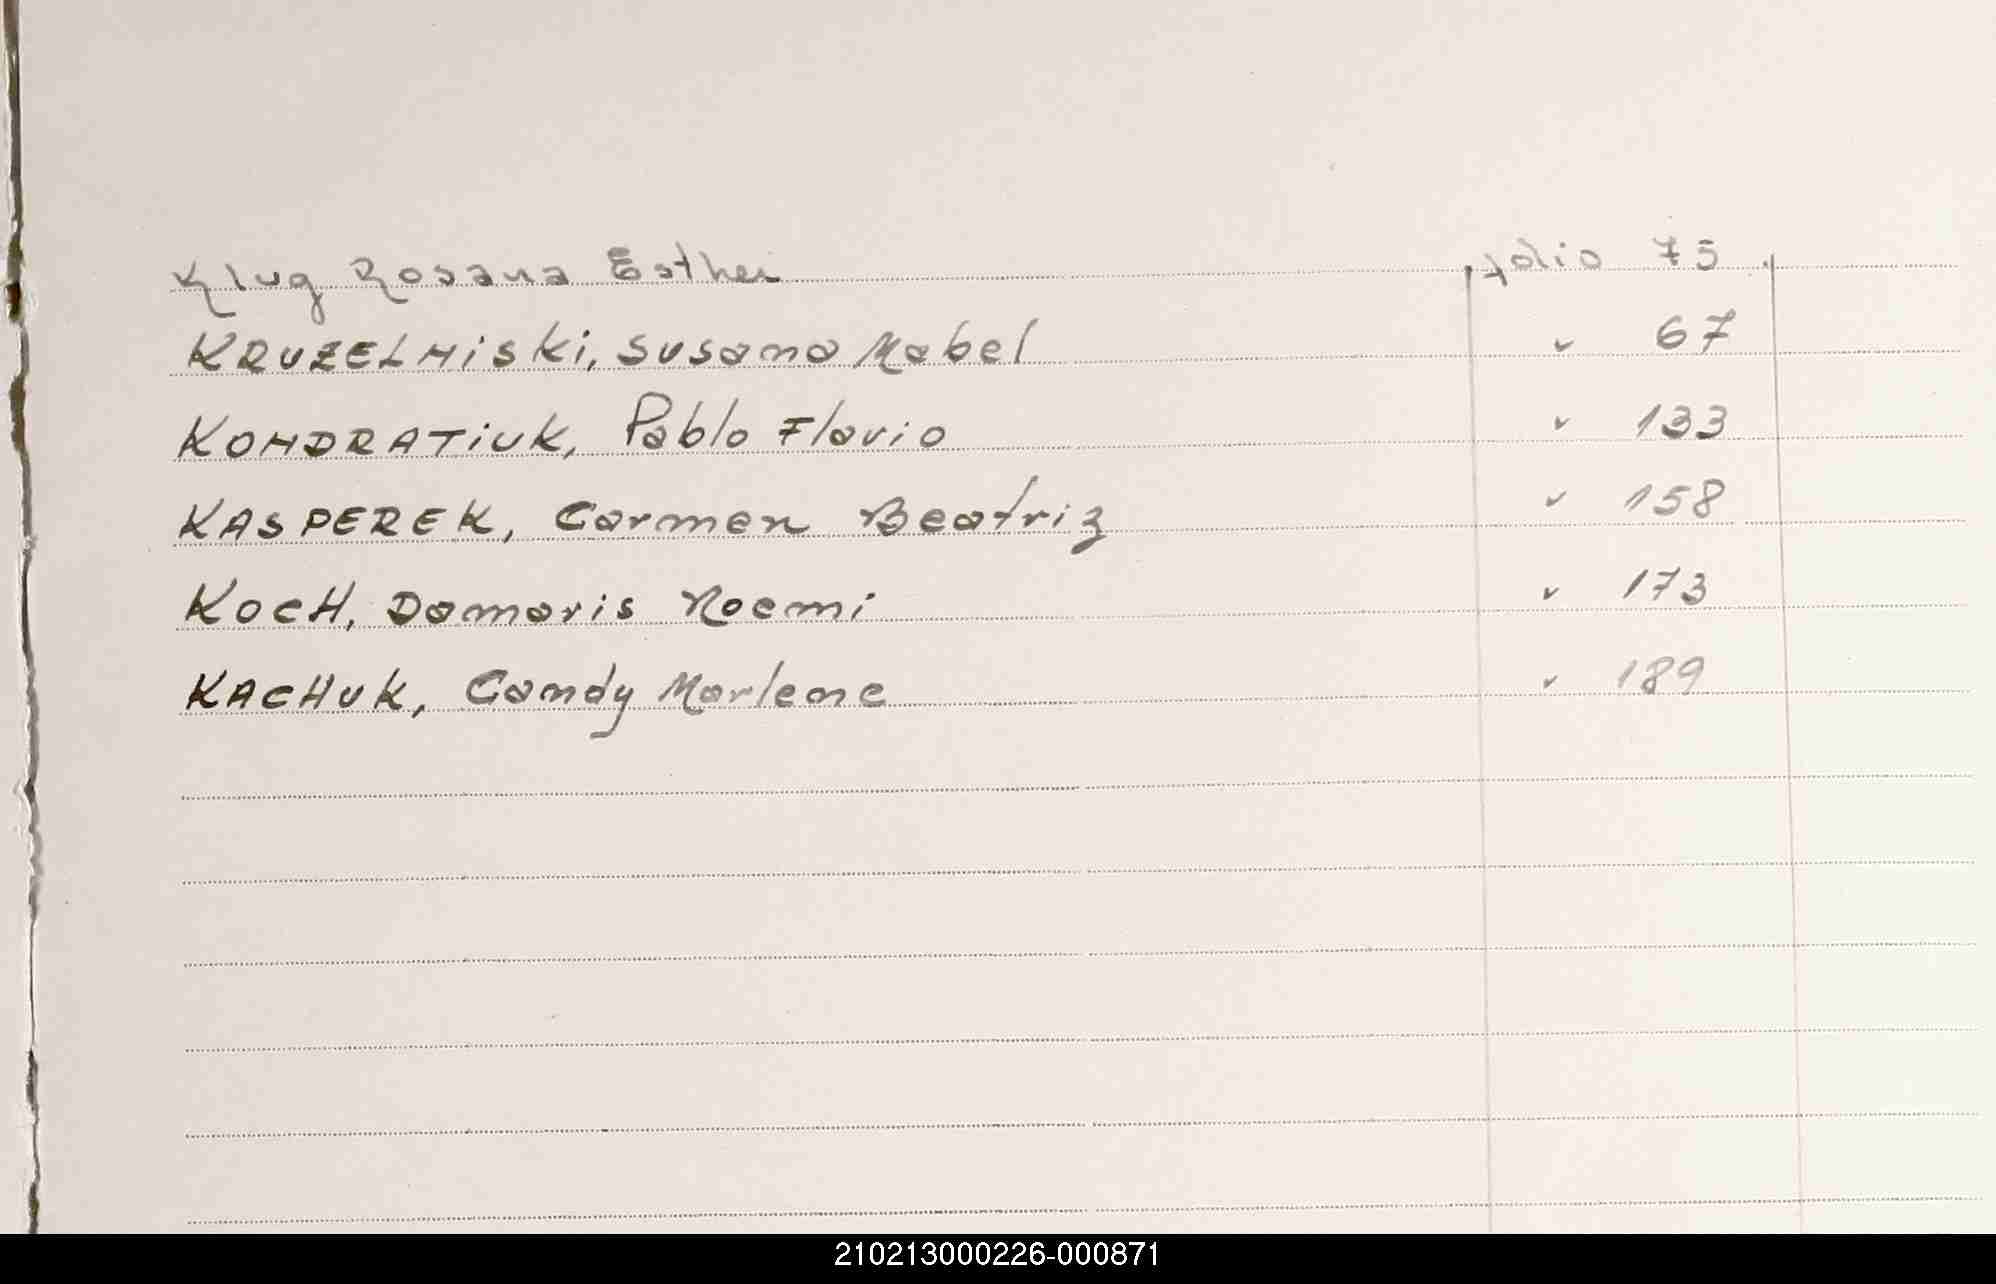 Klug Rosana Esther folio 75
KRUZELNiSKi, Susana Mabel " 67
KONDRATiUK, Pablo Flavio " 133
KASPEREK, Carmen Beatriz " 158
KOCH, Damaris Noemi " 173
KACHUK, Candy Marlene " 189
210213000226-000871